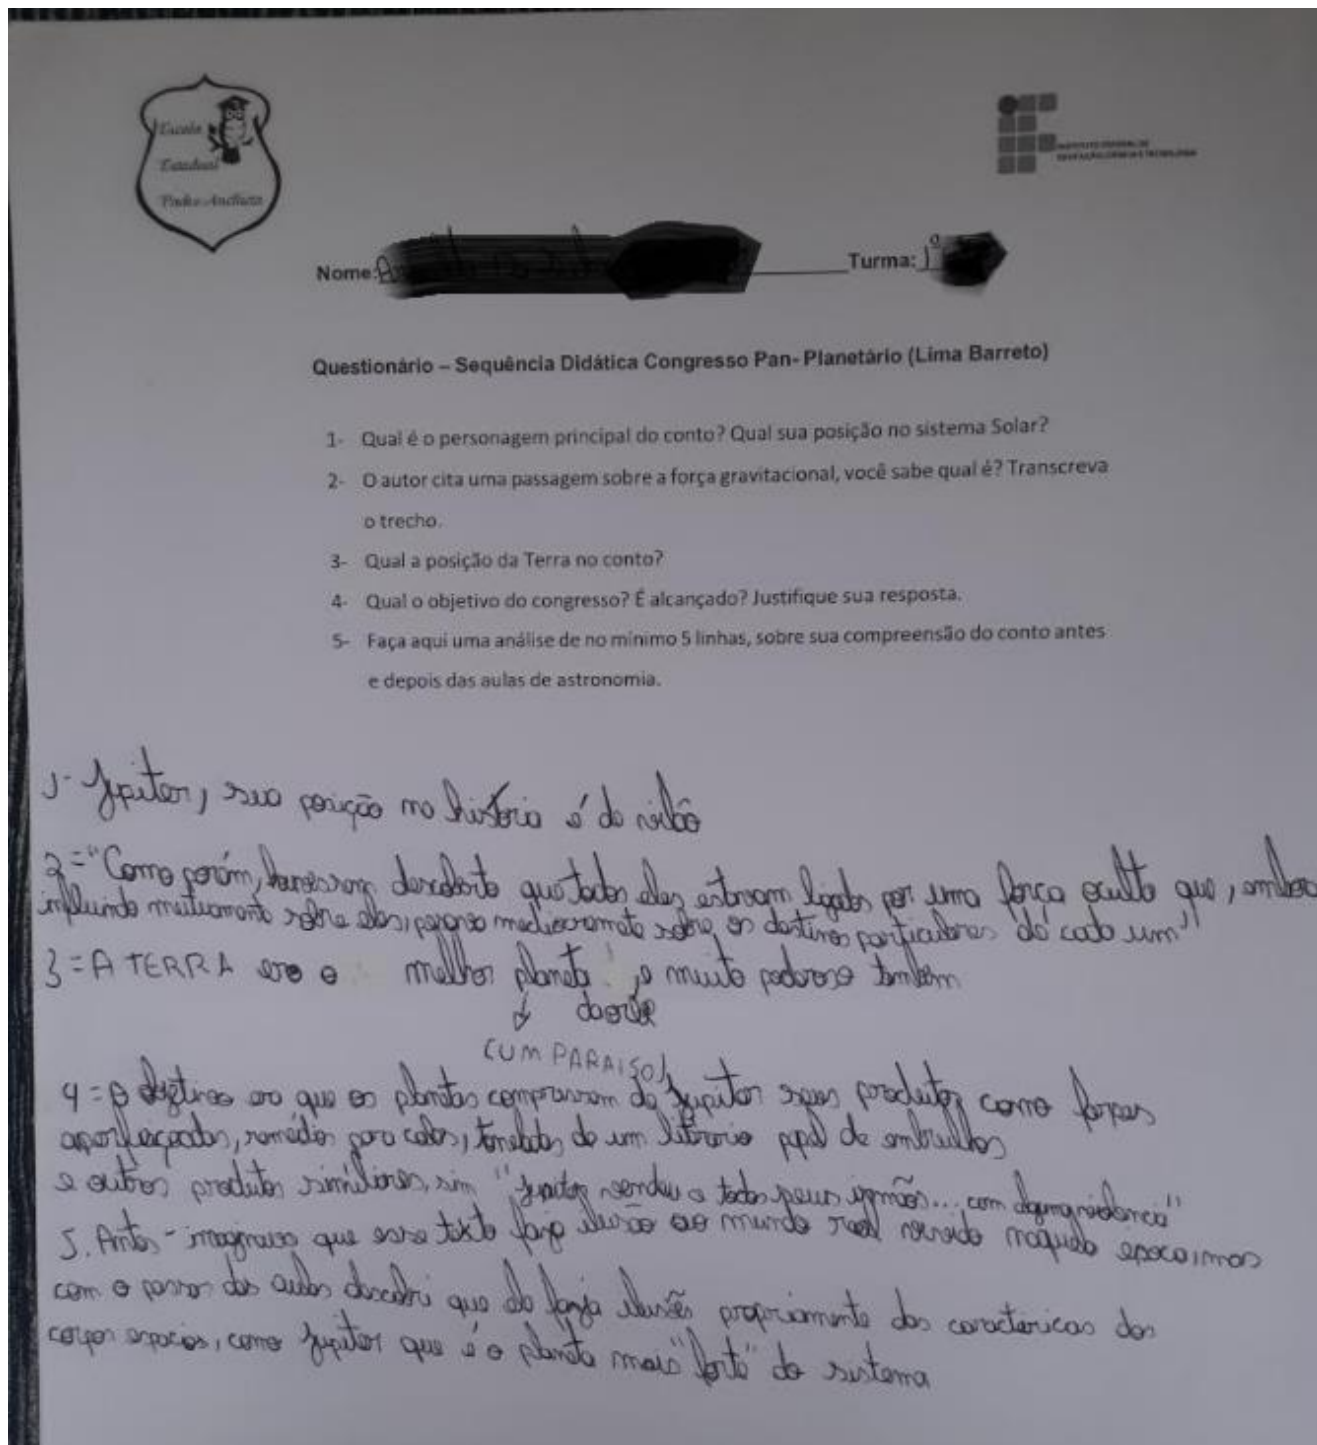 Escola
Estadual
Padre Anchieta
INSTITUTO FEDERAL DE
EDUCAÇÃO, CIÊNCIA E TECNOLOGIA
Nome: Turma: 1º
Questionário – Sequência Didática Congresso Pan- Planetário (Lima Barreto)
1- Qual é o personagem principal do conto? Qual sua posição no sistema Solar?
2- O autor cita uma passagem sobre a força gravitacional, você sabe qual é? Transcreva
o trecho.
3- Qual a posição da Terra no conto?
4- Qual o objetivo do congresso? É alcançado? Justifique sua resposta.
5- Faça aqui uma análise de no mínimo 5 linhas, sobre sua compreensão do conto antes
e depois das aulas de astronomia.
1- Jupiter, sua posição na história é do vilão
2="Como porém, descoberto que todos eles estavam ligados por uma força oculta que, embora
influindo mutuamente sobre eles, mediocremente sobre os destinos particulares de cada um"
3= A TERRA era o melhor planeta, e muito poderoso também
(UM PARAISO)
4= O era que os planetas comprassem de Jupiter seus produtos como
remédios para calos, toneladas de um papel de embrulhos
e outros produtos similares, sim "Jupiter vendeu a todos seus irmãos... com
5. Antes - imaginava que esse texto fazia alusão ao mundo real vivido naquela epoca, mas
com o passar das aulas descobri que ele fazia propriamente das dos
corpos como Jupiter que é o planeta mais "forte" do sistema